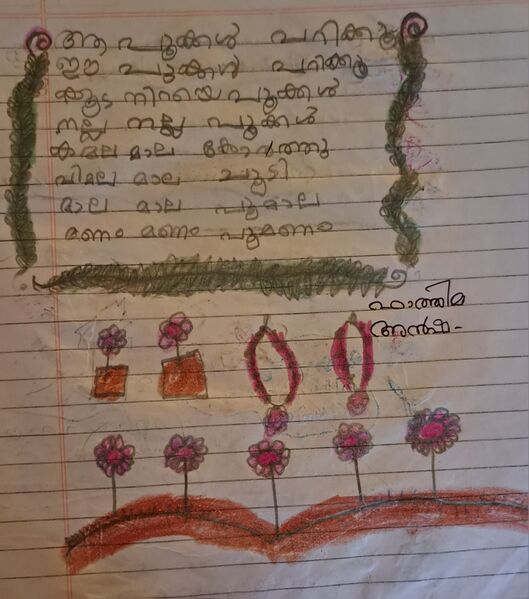 ആ പൂക്കൾ പറിക്കൂ
ഈ പൂക്കൾ പറിക്കൂ
കൂട നിറയെ പൂക്കൾ
നല്ല നല്ല പൂക്കൾ
കമല മാല കോർത്തു
വിമല മാല ചൂടി
മാല മാല പൂമാല
മണം മണം പൂമണം
ഫാത്തിമ